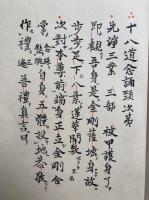 十八道念誦頸次第
先淨三業 三部 被甲護身了
即觀吾身是金剛薩埵身故
步步足下八葉蓮華開敷
次對本尊前端身正立金剛合
掌 念珠懸腕 自身五體投地恭敬
作禮 三遍 普禮真言曰